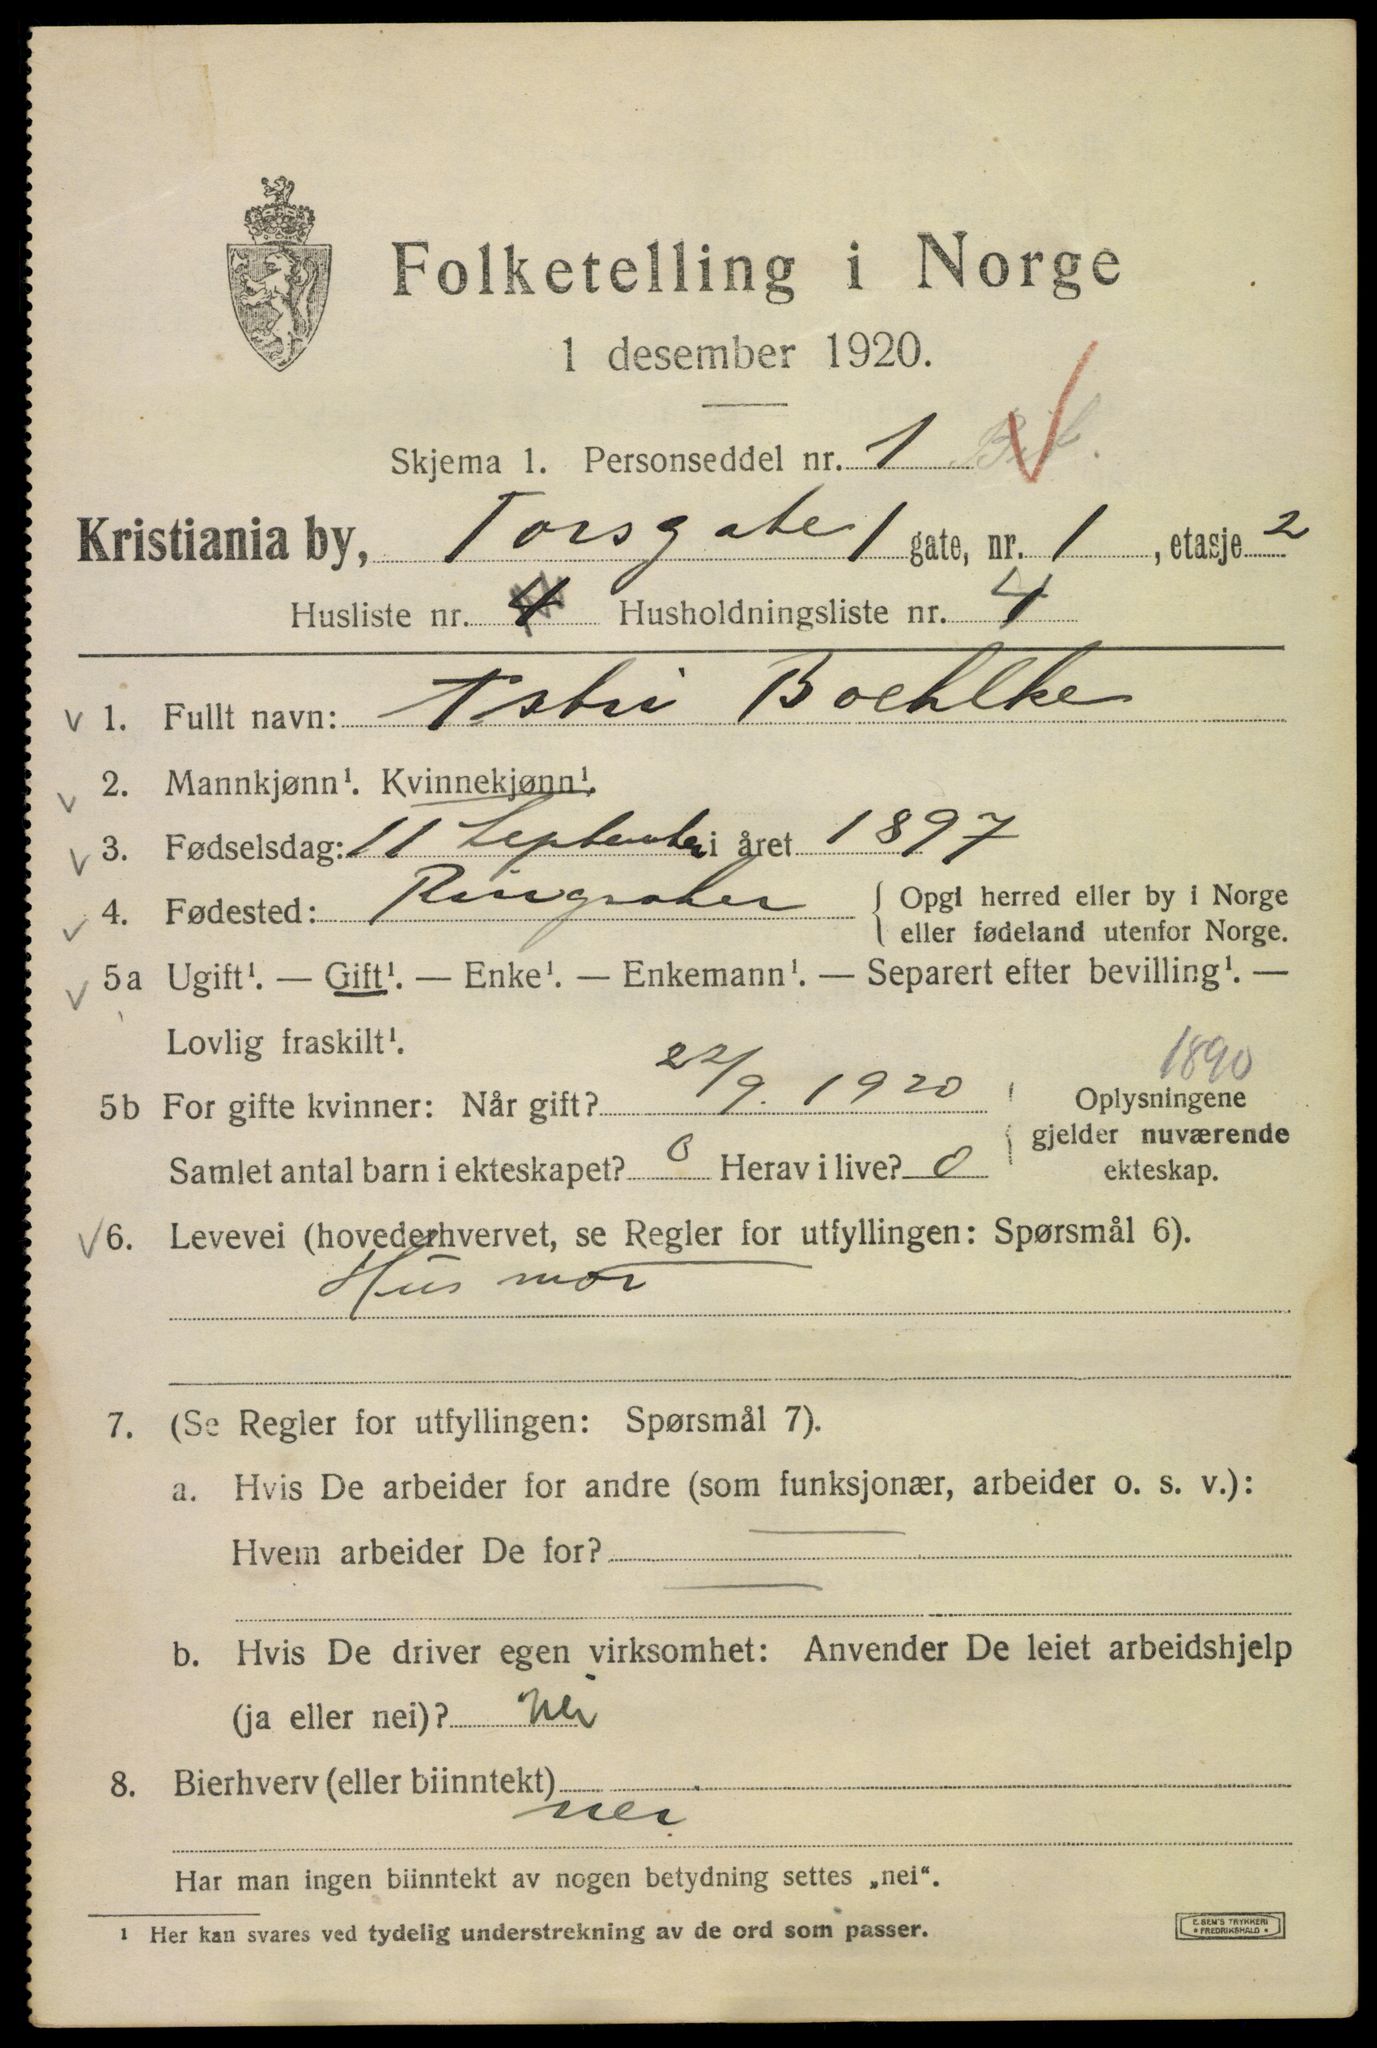 Folketelling i Norge
1 desember 1920.
Skjema 1. Personseddel nr. 1
Kristiania by, Torsgate 1 gate, nr. 1, etasje 2
Husliste nr. 4 Husholdningsliste nr. 4
V 1. Fullt navn: Astri Boehlke
V 2. Mannkjønn¹. Kvinnekjønn¹.
V 3. Fødselsdag: 11 September i året 1897
V 4. Fødested: Ringsaker { Opgi herred eller by i Norge
eller fødeland utenfor Norge.
V 5a Ugift¹. — Gift¹. — Enke¹. — Enkemann¹. — Separert efter bevilling¹. —
Lovlig fraskilt¹.
1890
5b For gifte kvinner: Når gift? 22/9. 1920 { Oplysningene
gjelder nuværende
ekteskap.
Samlet antal barn i ekteskapet? 0 Herav i live? 0
V 6. Levevei (hovederhvervet, se Regler for utfyllingen: Spørsmål 6).
Husmor
7. (Se Regler for utfyllingen: Spørsmål 7).
a. Hvis De arbeider for andre (som funksjonær, arbeider o. s. v.):
Hvem arbeider De for?
b. Hvis De driver egen virksomhet: Anvender De leiet arbeidshjelp
(ja eller nei)? Nei
8. Bierhverv (eller biinntekt)
nei
Har man ingen biinntekt av nogen betydning settes „nei“.
¹ Her kan svares ved tydelig understrekning av de ord som passer.
E. SEM'S TRYKKERI
* FREDRIKSHALD *